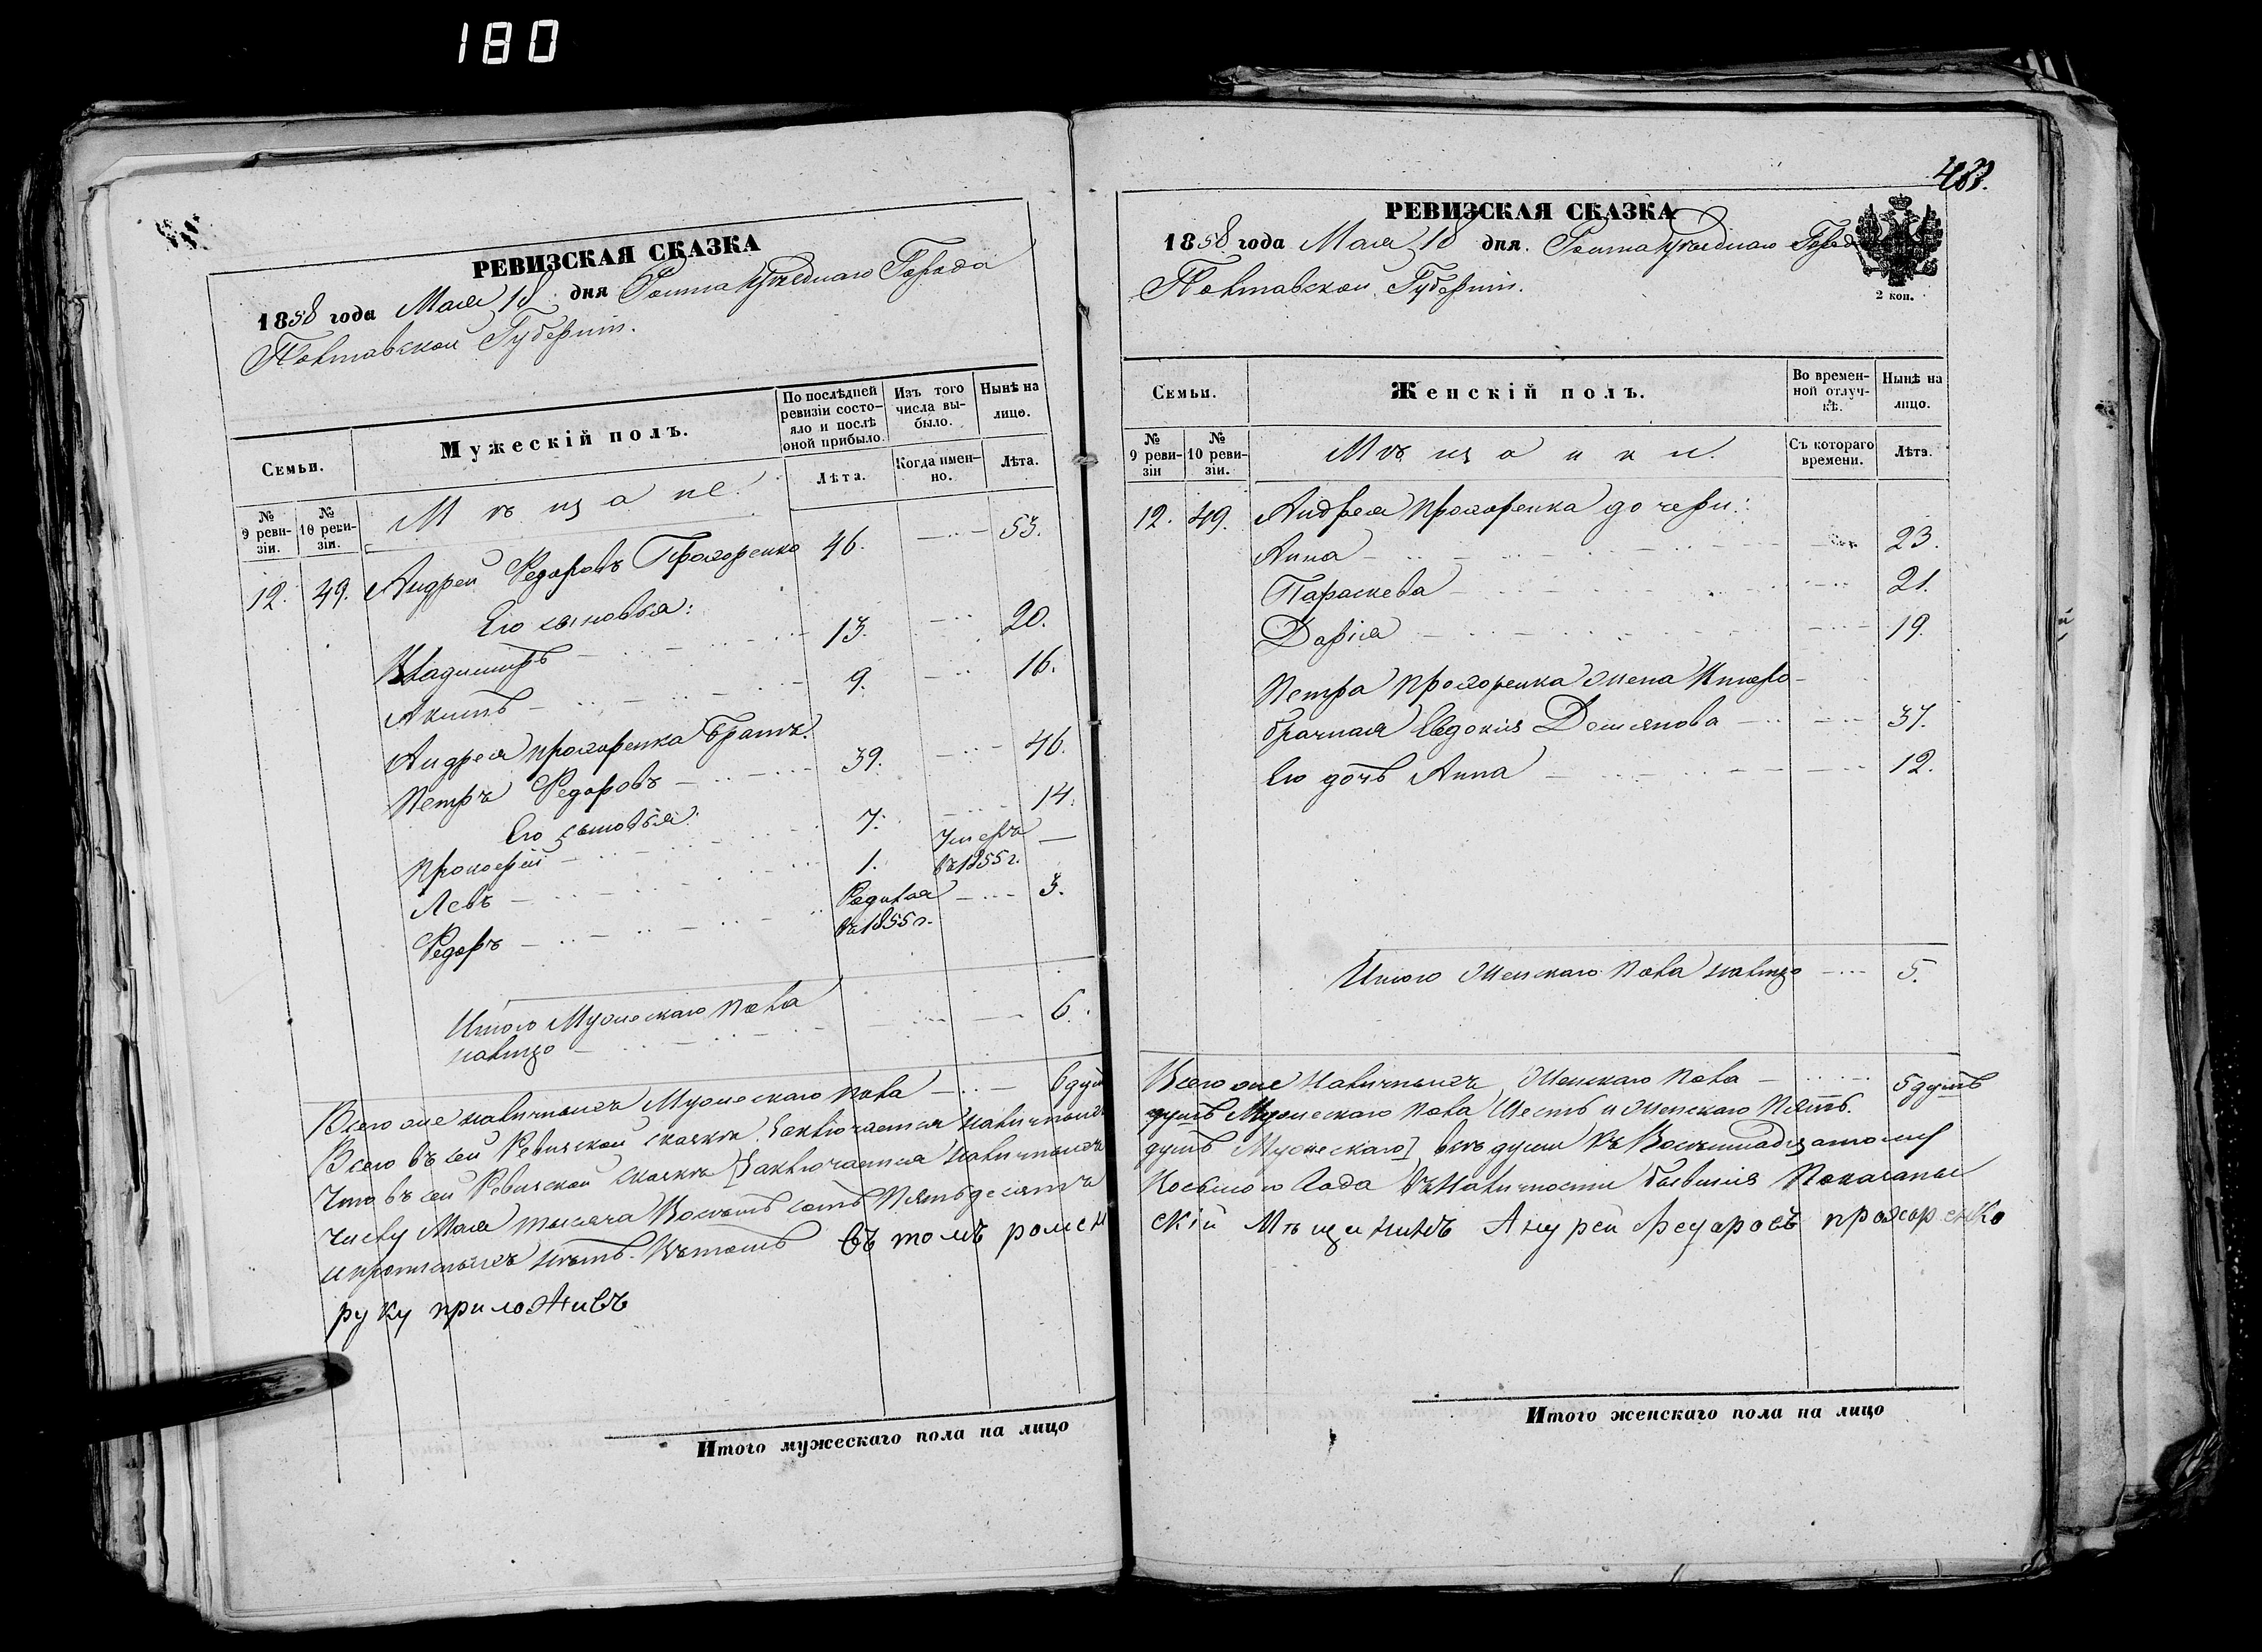 180
РЕВИЗСКАЯ СКАЗКА
1858 года Мая 18 дня Ромна Уѣзднаго Города
Полтавской Губерніи.
Семьи.
Мужескій полъ.
По послѣдней ревизіи состо-
яло и послѣ оной прибыло.
Изъ того числа вы-
было.
Нынѣ на лицо.
№ 9 реви-
зіи.
№ 10 реви-
зіи.
Мѣщане.
Лѣта.
Когда имен-
но.
Лѣта.
12. 49. Андрей Федоровъ Прохоренко 46. 53.
Его сыновья:
Владимиръ 13. 20.
Акимъ 9. 16.
Андрея Прохоренка братъ.
Петръ Федоровъ 39. 46.
Его сыновья:
Прокофій 7. 14.
Левъ 1. Умеръ въ 1855 г. —
Федоръ Родился въ 1855 г. 3.
Итого Мужескаго пола
налицо 6.
Всего же наличныхъ Мужескаго пола 6 душъ
Всего въ сей Ревизской сказкѣ заключается наличныхъ
Что въ сей Ревизской сказкѣ [Заключается наличныхъ
числу Мая тысяча Восемь сотъ Пятьдесятъ
и прописныхъ нѣтъ. Въ томъ въ томъ ромен
руку приложивъ
Итого мужескаго пола на лицо
483.
РЕВИЗСКАЯ СКАЗКА
1858 года Мая 18 дня. Ромна Уѣзднаго Города
Полтавской Губерніи.
2 коп.
Семьи.
Женскій полъ.
Во времен-
ной отлуч-
кѣ.
Нынѣ на лицо.
№ 9 реви-
зіи
№ 10 реви-
зіи.
Мѣщанки.
Съ котораго времени.
Лѣта.
12. 49. Андрея Прохоренка дочери:
Анна 23.
Параскева 21.
Дарія 19.
Петра Прохоренка жена Второ-
брачная Евдокія Демянова 37.
Его дочь Анна 12.
Итого Женскаго пола налицо 5.
Всего же наличныхъ Женскаго пола 5 душъ
душъ Мужескаго пола Шесть и Женскаго Пять.
душъ Мужескаго] всѣ души къ Восемнадцатому
Восьмого Года въ наличности бывшія Показаны
скій Мѣщининъ Андрей федоровъ прохоренко
Итого женскаго пола на лицо